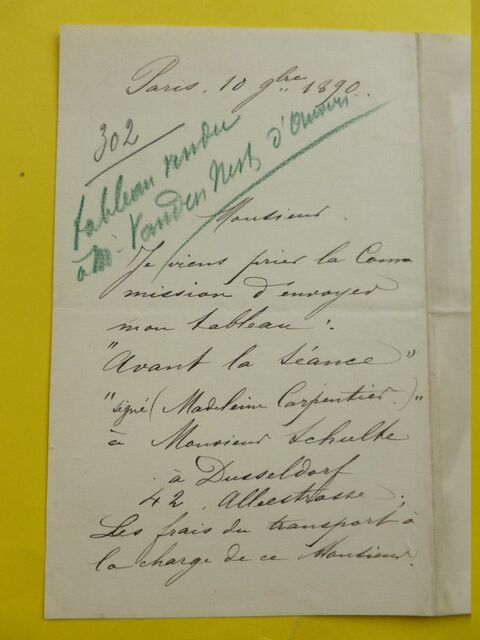 Paris, 10 9bre 1890.
302
tableau vendu
à Mr Vanden Nest d'Anvers
Monsieur.
Je viens prier la Com
mission d'envoyer
mon tableau :
"Avant la séance"
"signé (Madeleine Carpentier.)"
à Monsieur Schulte
à Dusseldorf
42, Alleestrasse,
Les frais du transport à
la charge de ce Monsieur.